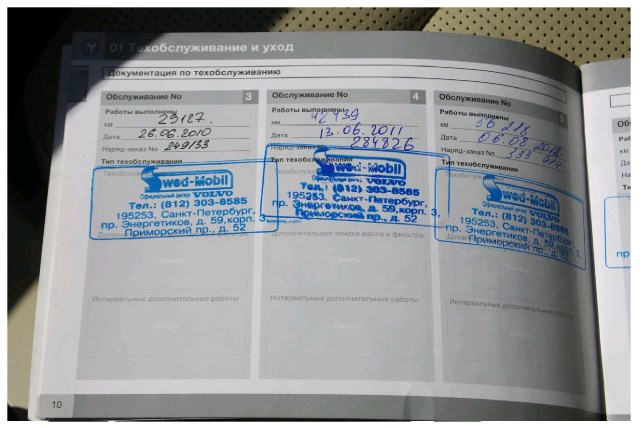 01 Техобслуживание и уход
Документация по техобслуживанию
Обслуживание No 3
Работы выполнены
км 29127.
Дата 26.06.2010
Наряд-заказ No 249133
Тип техобслуживания
Swed-Mobil
Официальный дилер VOLVO
Тел.: (812) 303-8585
195253, Санкт-Петербург,
пр. Энергетиков, д. 59, корп. 3,
Приморский пр., д. 52
Печать
Интервальные дополнительные работы
Печать
Обслуживание No 4
Работы выполнены
км 42439
Дата 13.06.2011
Наряд-заказ No 284826
Тип техобслуживания
Swed-Mobil
Официальный дилер VOLVO
Тел.: (812) 303-8585
195253, Санкт-Петербург,
пр. Энергетиков, д. 59, корп. 3,
Приморский пр., д. 52
Дополнительная замена масла и фильтра
Печать
Интервальные дополнительные работы
Печать
Обслуживание No
Работы выполнены
км
Дата 06.08.
Наряд-заказ No 333
Тип техобслуживания
Swed-Mobil
Официальный дилер VOLVO
Тел.: (812) 303-8585
195253, Санкт-Петербург,
пр. Энергетиков, д. 59, корп. 3,
Приморский пр., д. 52
Печать
Интервальные дополнительные работы
Печать
10